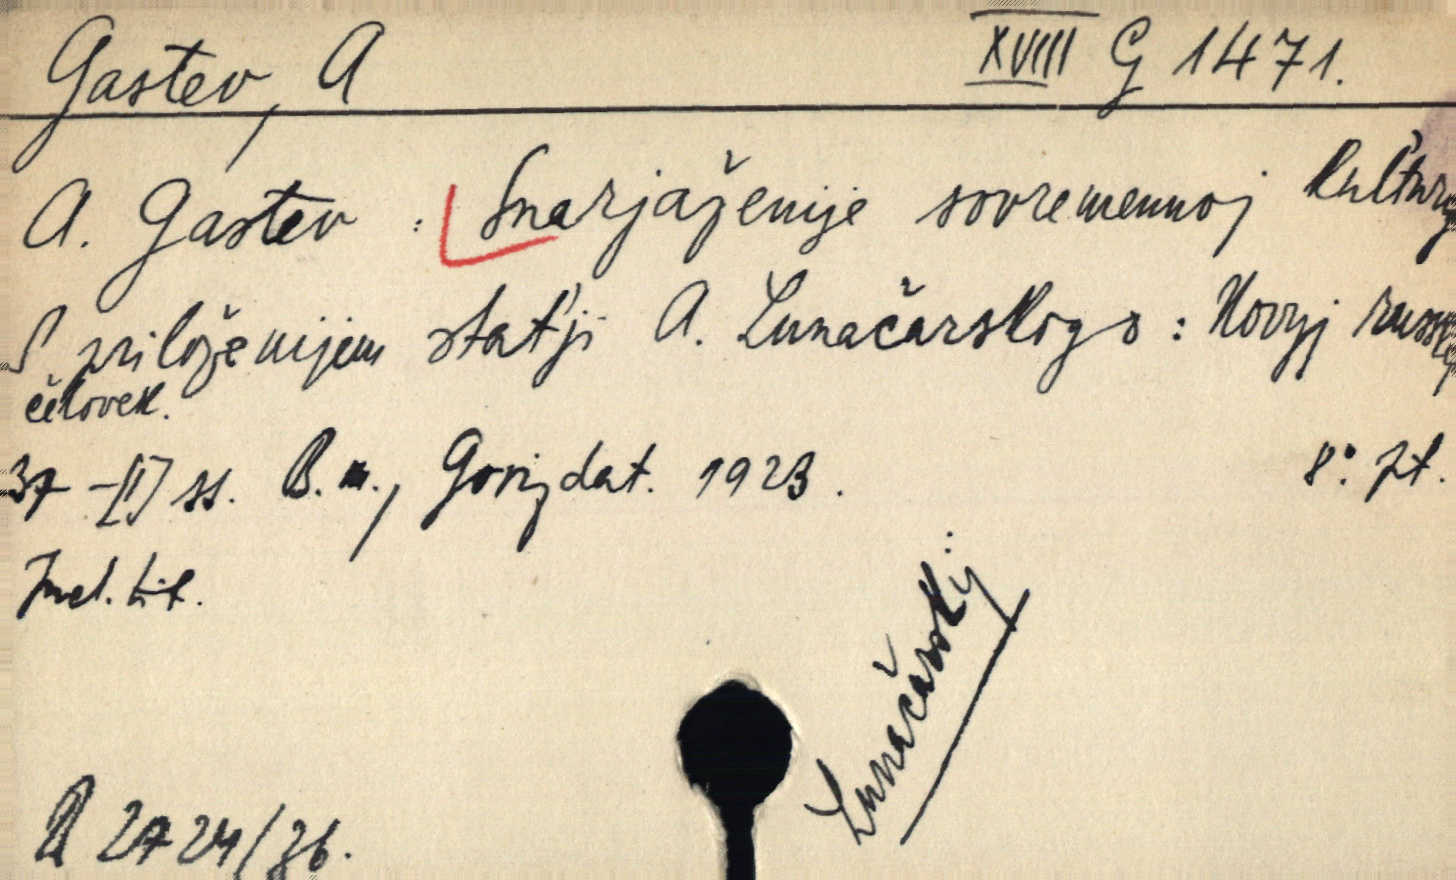 Gastev, A
XVIII G 1471.
A. Gastev : Snarjaženije sovremennoj kul'tury
S priloženijem stat'ji A. Lunačarskogo : Novyj russkij
čelovek.
37 -[1] ss. B. m., Gosizdat. 1923.
8°. pt.
Lunačarskij
R 2724/36.